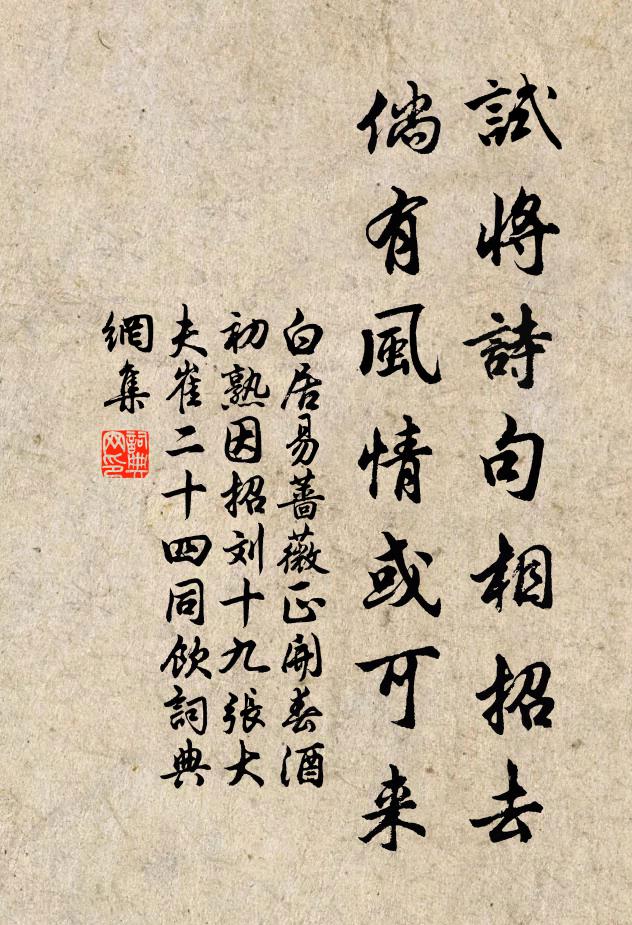 試將詩句相招去
倘有風情或可来
白居易薔薇正開春酒
初熟因招刘十九張大
夫崔二十四同飲詞典
網集
詞典
网印